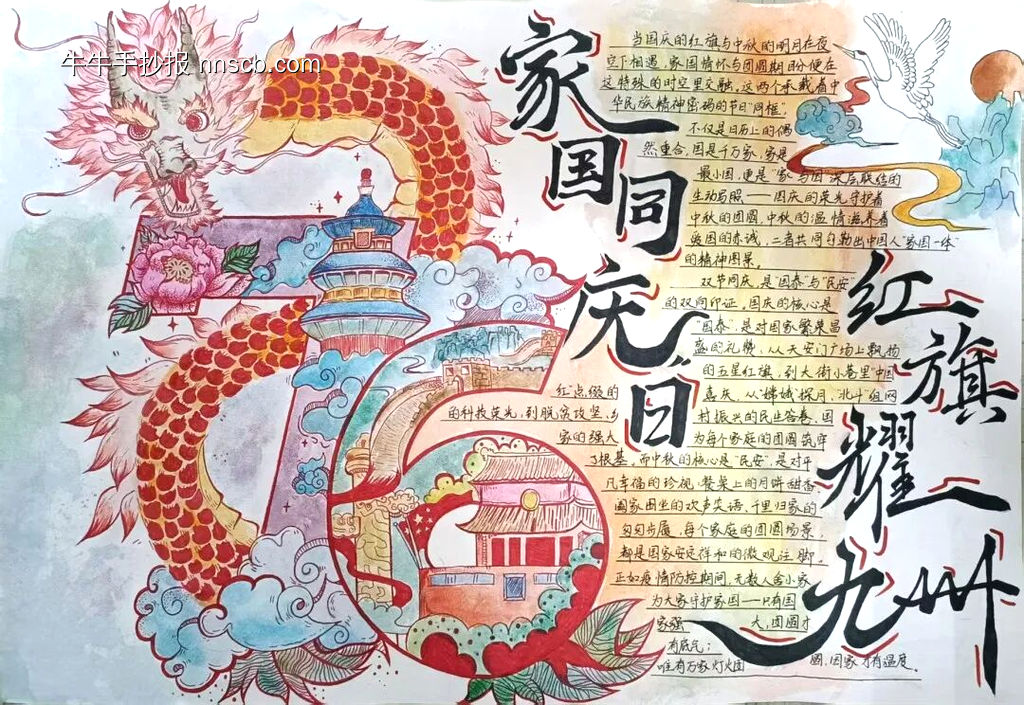 牛牛手抄报 nnscb.com
家国同庆日
红旗耀九州
76
当国庆的红旗与中秋的明月在夜
空下相遇，家国情怀与团圆期盼便在
这特殊的时空里交融。这两个承载着中
华民族精神密码的节日“同框”，
不仅是日历上的偶
然重合，国是千万家，家是
最小国，更是“家”与“国”深层联结的
生动写照——国庆的荣光守护着
中秋的团圆，中秋的温情滋养着
爱国的赤诚，二者共同勾勒出中国人“家国一体”
的精神图景。
双节同庆，是“国泰”与“民安”
的双向印证。国庆的核心是
“国泰”，是对国家繁荣昌
盛的礼赞，从天安门广场上飘扬
的五星红旗，到大街小巷里中国
红点缀的 喜庆，从“嫦娥”探月、北斗组网
的科技荣光，到脱贫攻坚、乡 村振兴的民生答卷，国
家的强大 为每个家庭的团圆筑牢
了根基。而中秋的核心是“民安”，是对平
凡幸福的珍视，餐桌上的月饼甜香、
阖家围坐的欢声笑语、千里归家的
匆匆步履，每个家庭的团圆场景，
都是国家安定祥和的微观注脚。
正如疫情防控期间，无数人舍小家
为大家守护家国——只有国
家强 大，团圆才
有底气；
唯有万家灯火团 圆，国家才有温度。